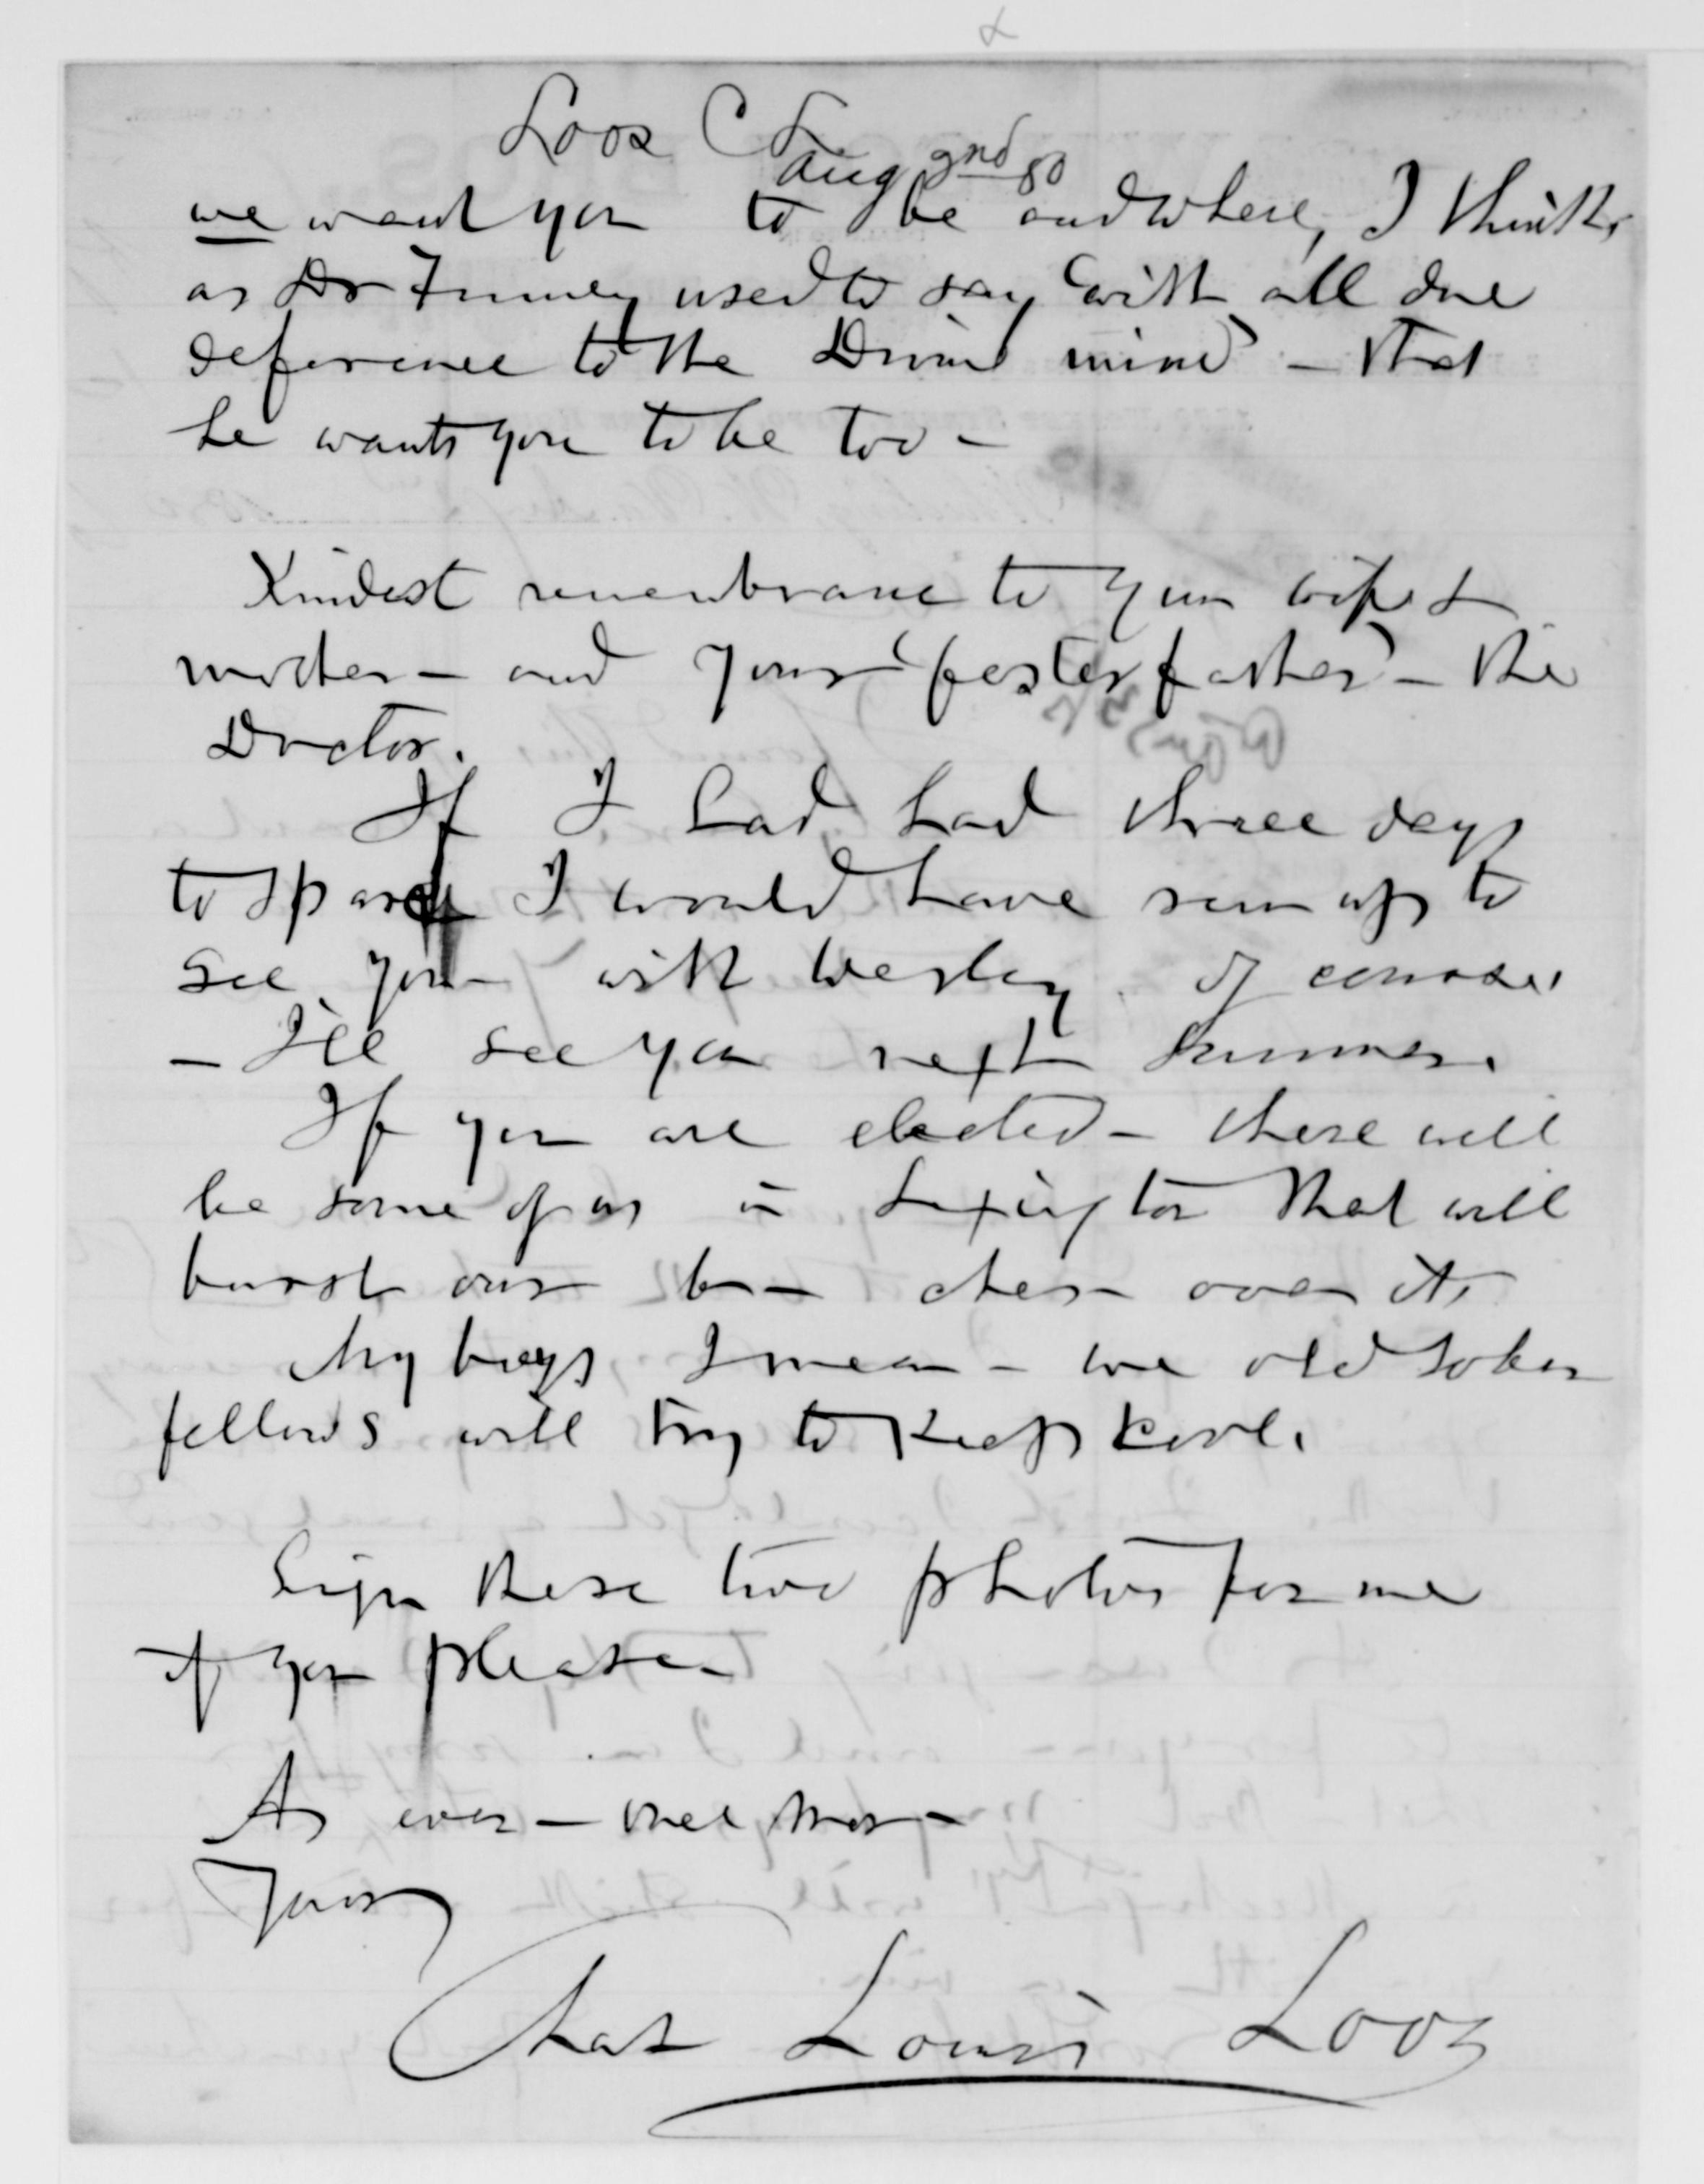 Loos C L
Aug 2nd 80
we want you to be and where, I think,
as Dr Finney used to say "with all due
deference to the Divine mind" – that
he wants you to be too –
Kindest remembrance to your wife &
mother – and your "foster father" – the
Doctor.
If I had had three days
to spare I would have run up to
see you with Wesley of course.
– I'll see you next summer.
If you are elected – there will
be some of us in Lexington that will
burst our over it.
My boys, I mean – we old sober
fellows will try to keep kool.
Sign these two photos for me
if you please
As ever –
Yours
Chas Louis Loos